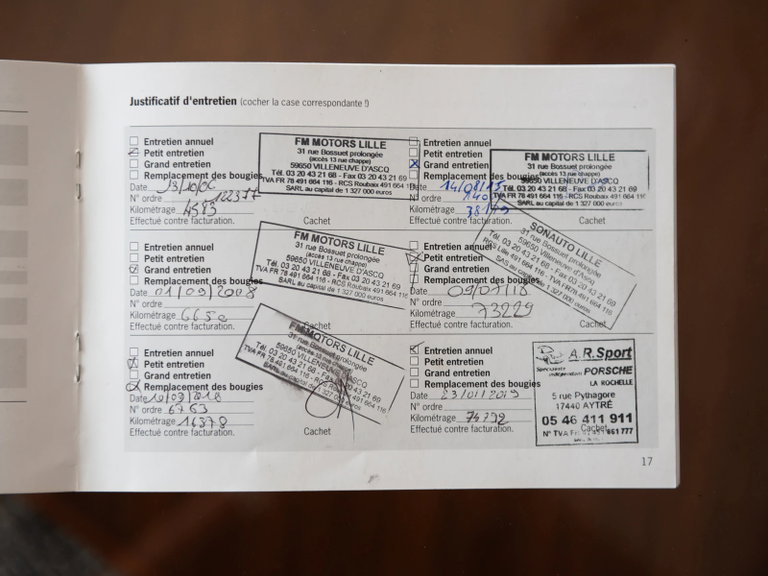 Justificatif d'entretien (cocher la case correspondante !)
Entretien annuel
Petit entretien
Grand entretien
Remplacement des bougies
Date 13/10/06
N° ordre 12237
Kilométrage 4583
Effectué contre facturation.
Cachet
FM MOTORS LILLE
31 rue Bossuet prolongée
(accès 13 rue chappe)
59650 VILLENEUVE D'ASCQ
Tél. 03 20 43 21 68 - Fax 03 20 43 21 69
TVA FR 78 491 664 116 - RCS Roubaix 491 664 116
SARL au capital de 1 327 000 euros
Entretien annuel
Petit entretien
Grand entretien
Remplacement des bougies
Date 14/08/15
N° ordre
Kilométrage
Effectué contre facturation.
Cachet
FM MOTORS LILLE
31 rue Bossuet prolongée
(accès 13 rue chappe)
59650 VILLENEUVE D'ASCQ
Tél. 03 20 43 21 68 - Fax 03 20 43 21 69
TVA FR 78 491 664 116 - RCS Roubaix 491 664 116
SARL au capital de 1 327 000 euros
Entretien annuel
Petit entretien
Grand entretien
Remplacement des bougies
Date 01/09/2008
N° ordre
Kilométrage 6650
Effectué contre facturation.
Cachet
FM MOTORS LILLE
31 rue Bossuet prolongée
(accès 13 rue chappe)
59650 VILLENEUVE D'ASCQ
Tél. 03 20 43 21 68 - Fax 03 20 43 21 69
TVA FR 78 491 664 116 - RCS Roubaix 491 664 116
SARL au capital de 1 327 000 euros
Entretien annuel
Petit entretien
Grand entretien
Remplacement des bougies
Date 09/07/18
N° ordre
Kilométrage 73229
Effectué contre facturation.
Cachet
SONAUTO LILLE
31 rue Bossuet prolongée
59650 Villeneuve d'Ascq
Tél. 03 20 43 21 68 - Fax 03 20 43 21 69
RCS Lille 491 664 116 - TVA FR78 491 664 116
SAS au capital de 1 327 000 euros
Entretien annuel
Petit entretien
Grand entretien
Remplacement des bougies
Date
N° ordre 6763
Kilométrage 14378
Effectué contre facturation.
Cachet
FM MOTORS LILLE
31 rue Bossuet prolongée
(accès 13 rue chappe)
59650 VILLENEUVE D'ASCQ
Tél. 03 20 43 21 68 - Fax 03 20 43 21 69
TVA FR 78 491 664 116 - RCS Roubaix 491 664 116
SARL au capital de 1 327 000 euros
Entretien annuel
Petit entretien
Grand entretien
Remplacement des bougies
Date 23/01/2019
N° ordre
Kilométrage 74792
Effectué contre facturation.
Cachet
A.R.Sport
Spécialiste indépendant PORSCHE
LA ROCHELLE
5 rue Pythagore
17440 AYTRÉ
05 46 411 911
N° TVA 661 777
17